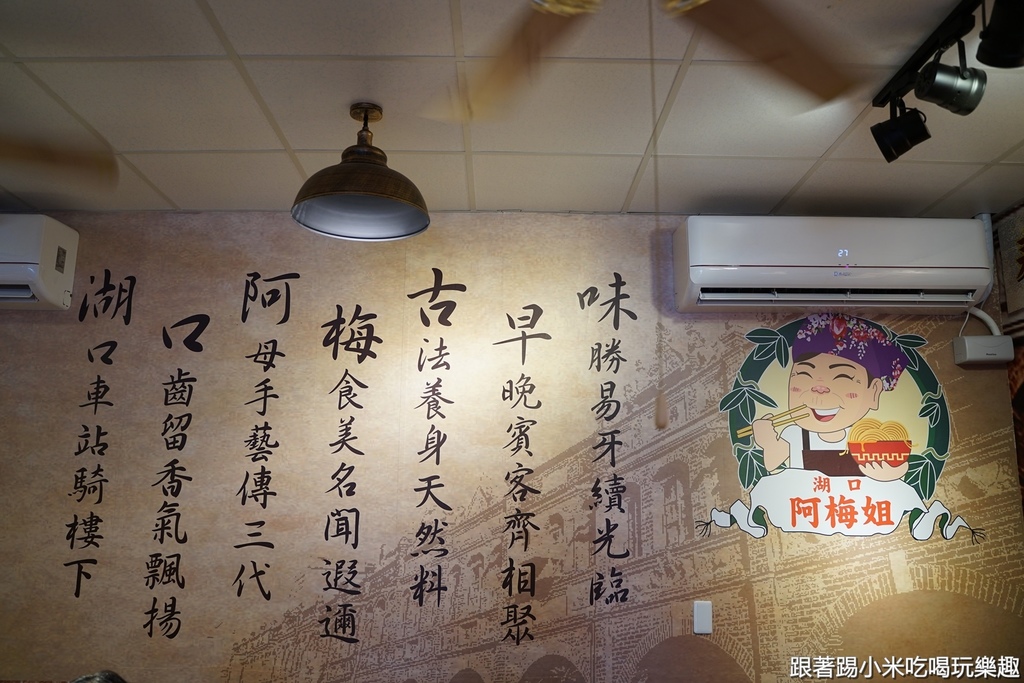 湖口車站騎樓下
口齒留香氣飄揚
阿母手藝傳三代
梅食美名聞遐邇
古法養身天然料
早晚賓客齊相聚
味勝易牙續光臨
27
湖口
阿梅姐
跟著踢小米吃喝玩樂趣